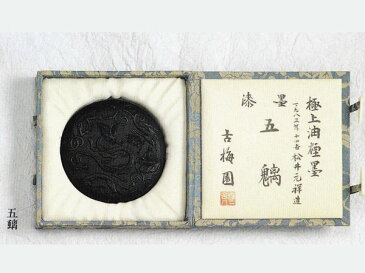 極上油煙墨
一九八三年十一月 松井元祥造
漆墨
五螭
古梅園
五螭